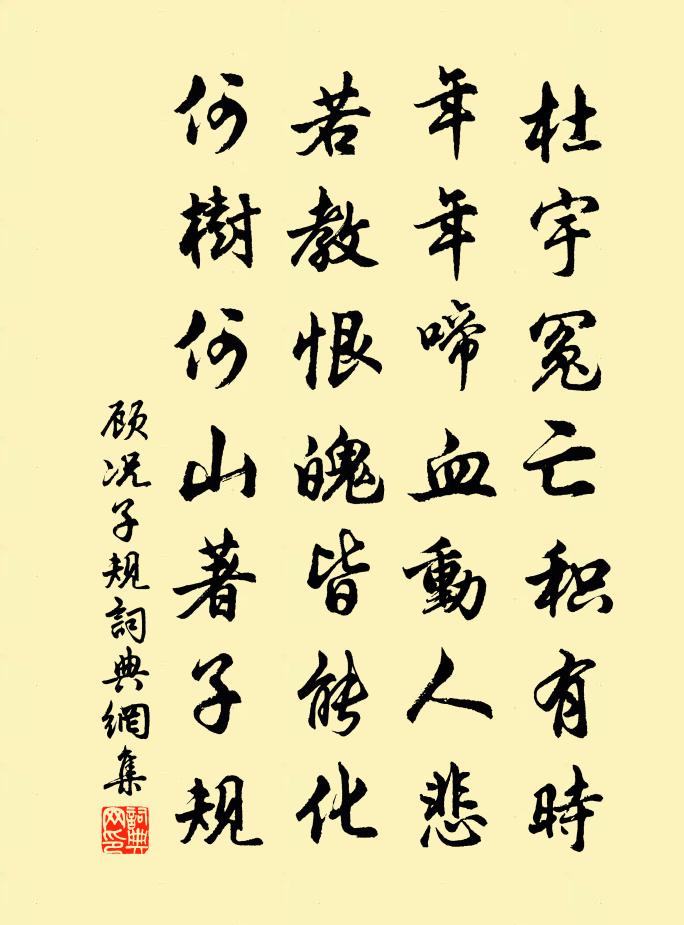 杜宇冤亡积有時
年年啼血動人悲
若教恨魄皆能化
何樹何山著子規
顾况子规詞典網集
詞典网印